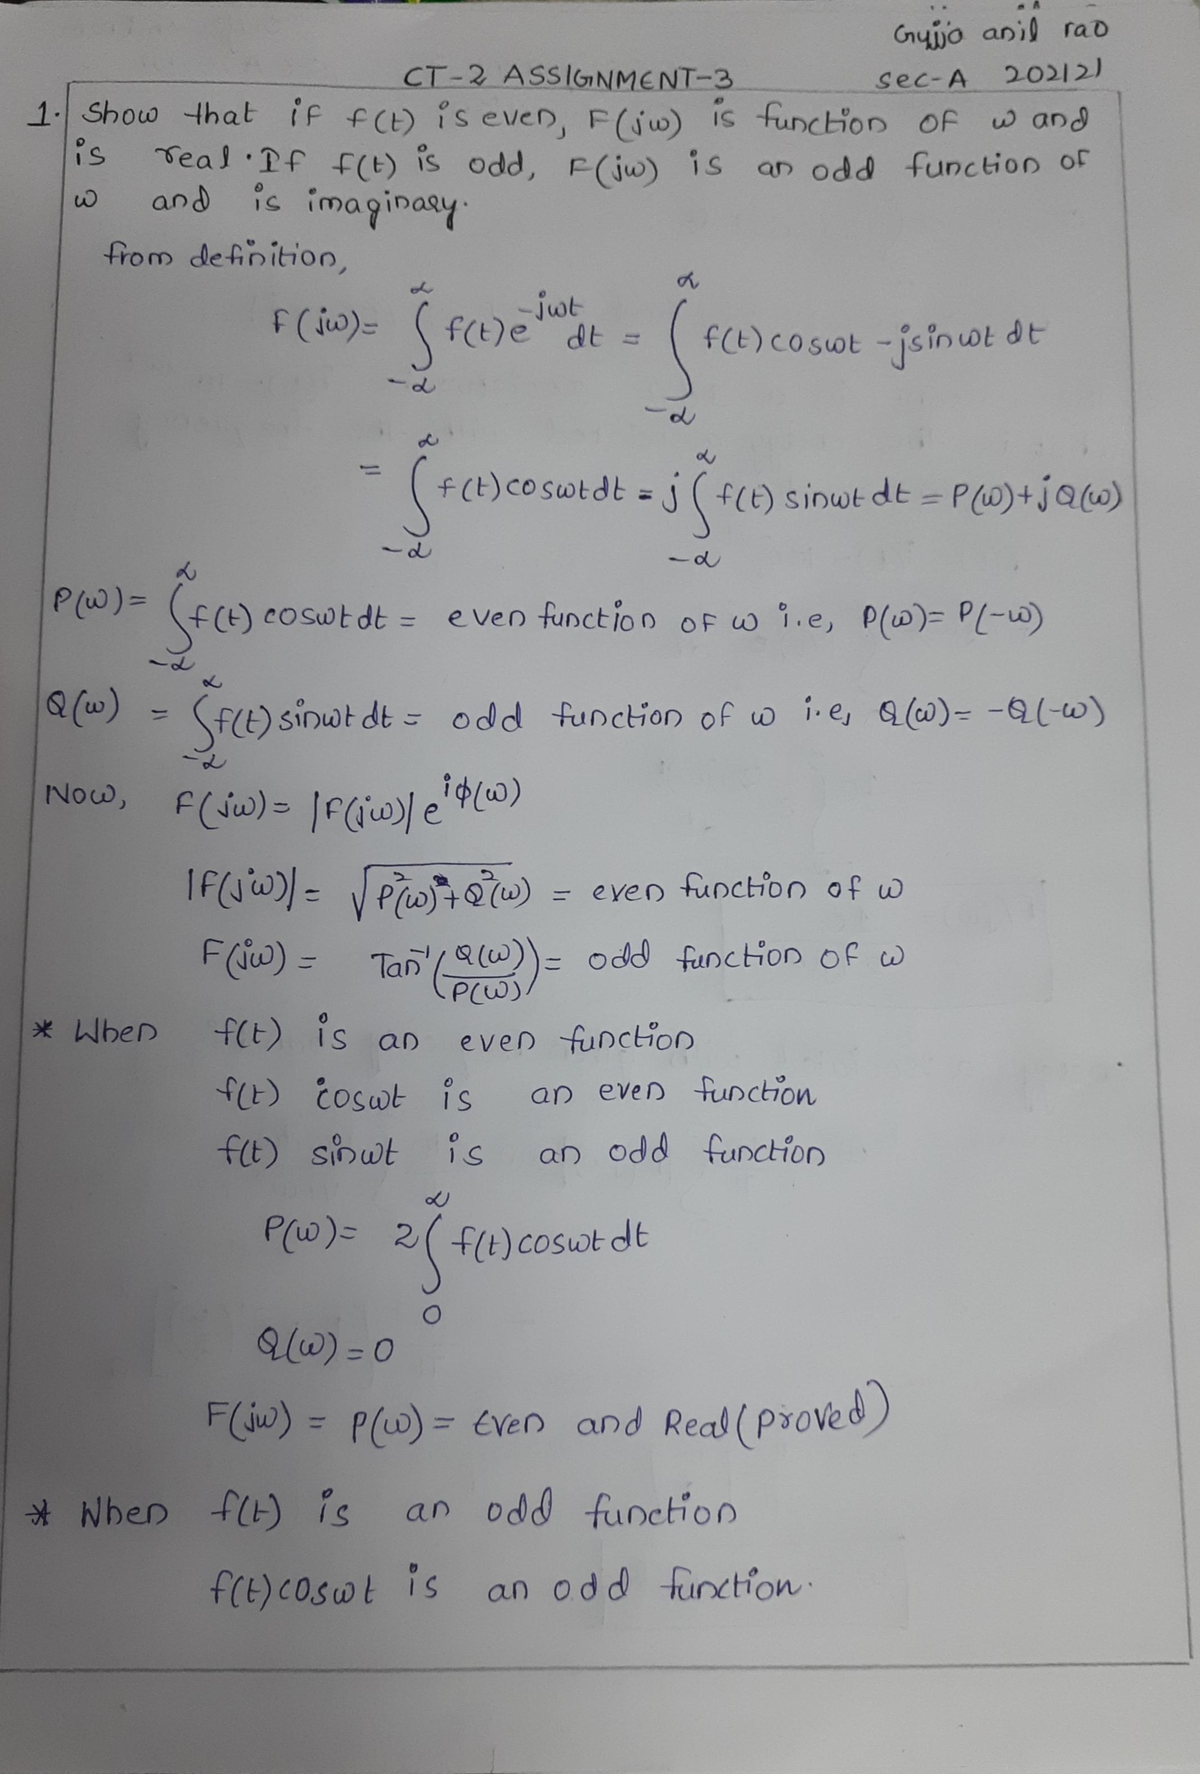 Gujjo anil rao
CT-2 ASSIGNMENT-3 sec-A 202121
1. Show that if f(t) is even, F(jω) is function of ω and
is real. If f(t) is odd, F(jω) is an odd function of
ω and is imaginary.
from definition,
F(jω)= ∫_{-α}^{α} f(t)e^{-jωt} dt = ∫_{-α}^{α} f(t) cosωt - jsinωt dt
= ∫_{-α}^{α} f(t) cosωt dt = j ∫_{-α}^{α} f(t) sinωt dt = P(ω)+jQ(ω)
P(ω)= ∫_{-α}^{α} f(t) cosωt dt = even function of ω i.e, P(ω)= P(-ω)
Q(ω) = ∫_{-α}^{α} f(t) sinωt dt = odd function of ω i.e, Q(ω)= -Q(-ω)
Now, F(jω)= |F(jω)| e^{iφ(ω)}
|F(jω)| = √P²(ω)+Q²(ω) = even function of ω
F(jω) = Tan⁻¹(Q(ω)/P(ω)) = odd function of ω
* When f(t) is an even function
f(t) cosωt is an even function
f(t) sinωt is an odd function
P(ω)= 2∫_{0}^{α} f(t) cosωt dt
Q(ω) = 0
F(jω) = P(ω) = Even and Real (proved)
* When f(t) is an odd function
f(t) cosωt is an odd function.